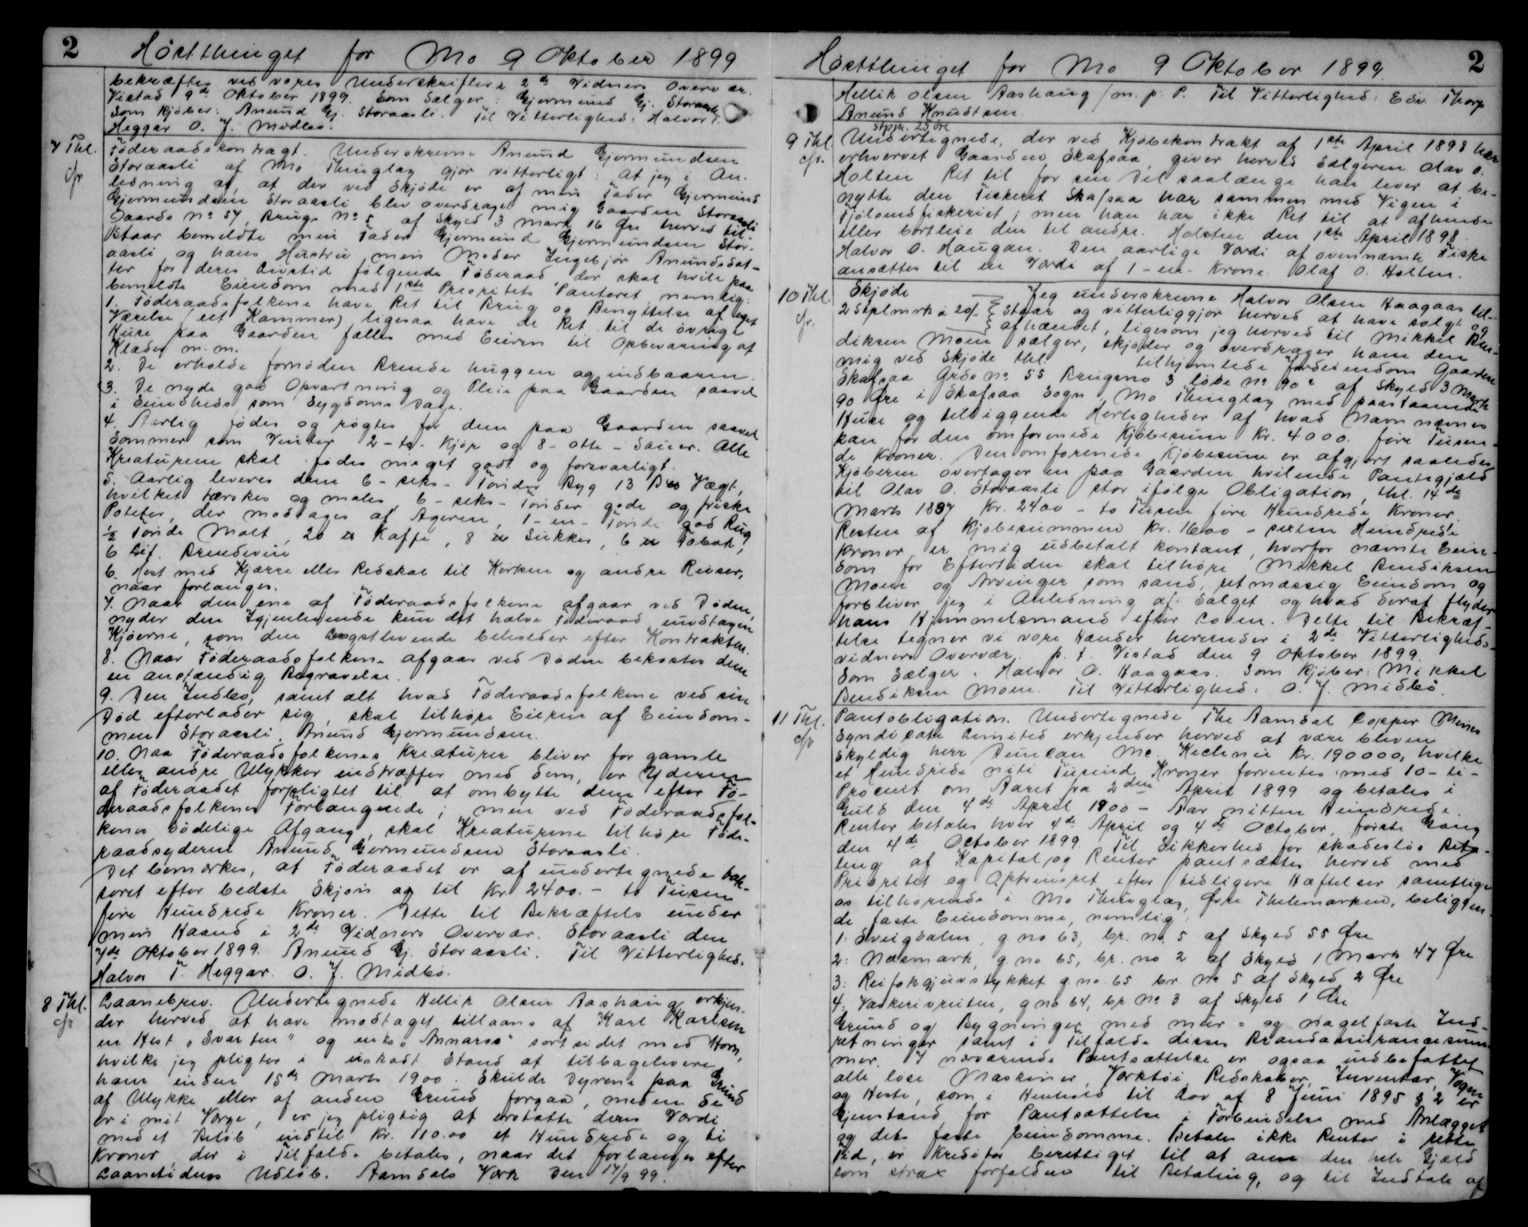 2 Høstthinget for Mo 9 Oktober 1899
bekræftes ved vores Underskrifter i 2de Vidners Overvær.
Vistad 9de Oktober 1899. Som Sælger: Gjermund Gj. Storaasli
Som Kjøber: Anund Gj. Storaasli. Til Vitterlighed: Halvor T.
Heggar O. J. Midbø.
7 Thl. Föderaadskontragt. Underskrevne Anund Gjermundsen
Storaasli af Mo Thinglag gjør vitterligt: At jeg i An-
ledning af, at der ved Skjöde er af min Fader Gjermund
Gjermundsen Storaasli blev overdraget mig Gaarden Storaasli
Gaards No 57 Brugs No 5 af Skyld 3 mark 16 Øre herved til-
staar bemeldte min Fader Gjermund Gjermundsen Stor-
aasli og hans Hustru, min Moder Ingebjør Anundsdat-
ter for deres Livstid følgende Föderaad der skal hvile paa
bemeldte Eiendom med 1ste Prioritets Panteret nemlig:
1. Föderaadsfolkene have Ret til Brug og Benyttelse af eget
Værelse (eet Kammer) ligesaa have de Ret til de övrige
Huse paa Gaarden fælles med Eieren til Opbevaring af
Klæder m. m.
2. De erholde fornöden Brænde huggen og indbaaren.
3. De nyde god Opvartning og Pleie paa Gaarden saavel
i Sundheds som Sygdoms Dage.
4. Aarlig födes og rögtes for dem paa Gaarden saavel
Sommer som Vinter 2 - to - Kjør og 8 - otte - Sauer. Alle
Kreaturene skal födes meget godt og forsvarligt.
5. Aarlig leveres dem 6 - seks - Tønder Byg 13 Bis Vægt,
hvilket tærskes og males 6 - seks - Tønder gode og friske
Poteter, der modtages af Ageren, 1 - en - Tønde god Rug
½ Tønde Malt, 20 ℔ Kaffe, 8 ℔ Sukker, 6 ℔ Tobak,
6 Brændevin
6. Hest med Kjærre eller Redskab til Kirken og andre Reiser,
naar forlanges.
7. Naar den ene af Föderaadsfolkene afgaar ved Döden,
nyder den Igjenlevende kun det halve Föderaad undtagen
Kjøerne, som den Længstlevende beholder efter Kontrakten.
8. Naar Föderaadsfolkene afgaar ved Döden bekostes dem
en anstændig Begravelse.
9. Den Indbo, samt alt hvad Föderaadsfolkene ved sin
Död efterlader sig, skal tilhøre Eieren af Eiendom-
men Storaasli Anund Gjermundsen.
10. Naar Föderaadsfolkenes Kreaturer bliver for gamle
eller andre Ulykker indtræffer med dem, er Yderen
af Föderaadet forpligtet til at ombytte dem efter Fö-
deraadsfolkenes Forlangende; men ved Föderaadsfol-
kenes dödelige Afgang, skal Kreaturene tilhøre Föde-
raadsyderen Anund Gjermundsen Storaasli.
Det bemærkes, at Föderaadet er af undertegnede tak-
seret efter bedste Skjøn og til Kr 2400.- to Tusen
fire Hundrede Kroner. Dette til Bekræftelse under
min Haand i 2de Vidners Overvær. Storaasli den
7de Oktober 1899. Anund Gj. Storaasli. Til Vitterlighed.
Halvor T. Heggar. O. J. Midbø.
8 Thl. Laanebrev. Undertegnede Hellik Olsen Aashaug erkjen-
der herved at have modtaget tillaans af Karl Karlsen
en Hest "Svarten" og en Ko "Annaros" sortsidet med Horn,
hvilke jeg pligter i uskadt Stand at tilbagelevere
ham inden 15de Marts 1900. Skulde Dyrene paa Grund
af Ulykke eller af anden Grund forgaa, medens de
er i mit Værge, er jeg pligtig at erstatte dem Værdi
med et Beløb indtil Kr. 110.00 et Hundrede og ti
Kroner der i Tilfælde betales, naar det forlanges efter
Laanetidens Udløb. Aamdals Værk den 17/9 99.
Høstthinget for Mo 9 Oktober 1899 2
Hellik Olsen Aashaug / m. p. P. Til Vitterlighed: Edv. Thorp
Anund Knudtsen.
9 Thl. Undertegnede, der ved Kjøbekontrakt af 1ste April 1898 har
erhvervet Gaarden Skafsaa, giver herved Sælgeren Olav O.
Holten Ret til for sin Del saalænge han lever at be-
nytte den Fiskeret Skafsaa har sammen med Vigen i
Fjölandsfiskeriet; men han har ikke Ret til at afhænde
eller bortleie den til andre. Holsten den 1ste April 1898.
Halvor O. Haugan. Den aarlige Værdi af ovennævnte Fiske
ansættes til en Værdi af 1 - en - Krone. Olaf O. Holten.
10 Thl. Skjøde Jeg underskrevne Halvor Olsen Haagaas til-
2 Stplmrk a staar og vitterliggjør herved at have solgt og
afhændet, ligesom jeg herved til Mikkel Ben-
diksen Moen sælger, skjøder og overdrager ham den
mig ved Skjøde thl tilhjemlede Eiendom Gaarden
Skafsaa Grds No 55 Brugsno 3 løbe No 90a af Skyld 3 Mark
90 Øre i Skafsaa Sogn, Mo Thinglag med paastaaende
Huse og tilliggende Herligheder af hvad Navn nævnes
kan for den omforenede Kjøbesum Kr. 4000. fire Tusen-
de Kroner. Den omforenede Kjøbesum er afgjort saaledes
Kjøberen overtager en paa Gaarden hvilende Pantegjæld
til Olav O. Storaasli stor ifølge Obligation, thl. 14de
Marts 1887 Kr. 2400 - to Tusen fire Hundrede Kroner.
Resten af Kjøbesummen Kr. 1600 - sexten Hundrede
Kroner, er mig udbetalt kontant, hvorfor nævnte Eien-
dom for Eftertiden skal tilhøre Mikkel Bendiksen
Moen og Arvinger som sand, retmæssig Eiendom og
forbliver jeg i Anledning af Salget og hvad deraf flyder
hans Hjemmelsmand efter Loven. Dette til Bekræf-
telse tegner vi vore Hænder herunder i 2de Vitterligheds-
vidners Overvær, p. t. Vistad den 9 Oktober 1899.
Som Sælger. Halvor O. Haagaas. Som Kjøber: Mikkel
Bendiksen Moen. Til Vitterlighed: O. J. Midbø.
11 Thl. Pantobligation. Undertegnede The Aamdal Copper Mines
Syndicate Limited erkjender herved at være bleven
skyldig herr Duncan Mc. Kechnie Kr. 190000, hvilke
et Hundrede niti Tusind Kroner forrentes med 10 - ti -
Procent om Aaret fra 2den April 1899 og betales i
Guld den 4de April 1900 - Aar nitten Hundrede.
Renter betales hver 4de April og 4de October, første Gang
den 4de October 1899. Til Sikkerhed for skadesløs Beta-
ling af Kapital og Renter pantsættes herved med
Prioritet og Oprensret efter tidligere Hæftelser samtlige
os tilhørende i Mo Thinglag, Øvre Thelemarken, beliggen-
de faste Eiendomme, nemlig:
1: Sveigdalen, g no 63, br. no. 5 af Skyld 55 Øre
2: Næsmark, g no 65, br. no 2 af Skyld 1 Mark 47 Øre
3: g no. 65 br no 5 af Skyld 2 Øre
4. g no 64, br No 3 af Skyld 1 Øre
Grund og Bygninger med mur- og nagelfaste Ind-
retninger samt i Tilfælde disses Brandassurancesum-
mer. I nærværende Pantsættelse er ogsaa indbefattet
alle løse Maskiner, Værktøi Redskaber, Inventar, Vogne
og Heste, som i Henhold til Lov af 8 Juni 1895 § 2 er
Gjenstand for Pantsættelse i Forbindelse med Anlægget
og dets faste Eiendomme. Betales ikke Renter i rette
Tid, er Kreditor berettiget til at anse den hele Gjæld
som strax forfalden til Betaling, og til Indtale af